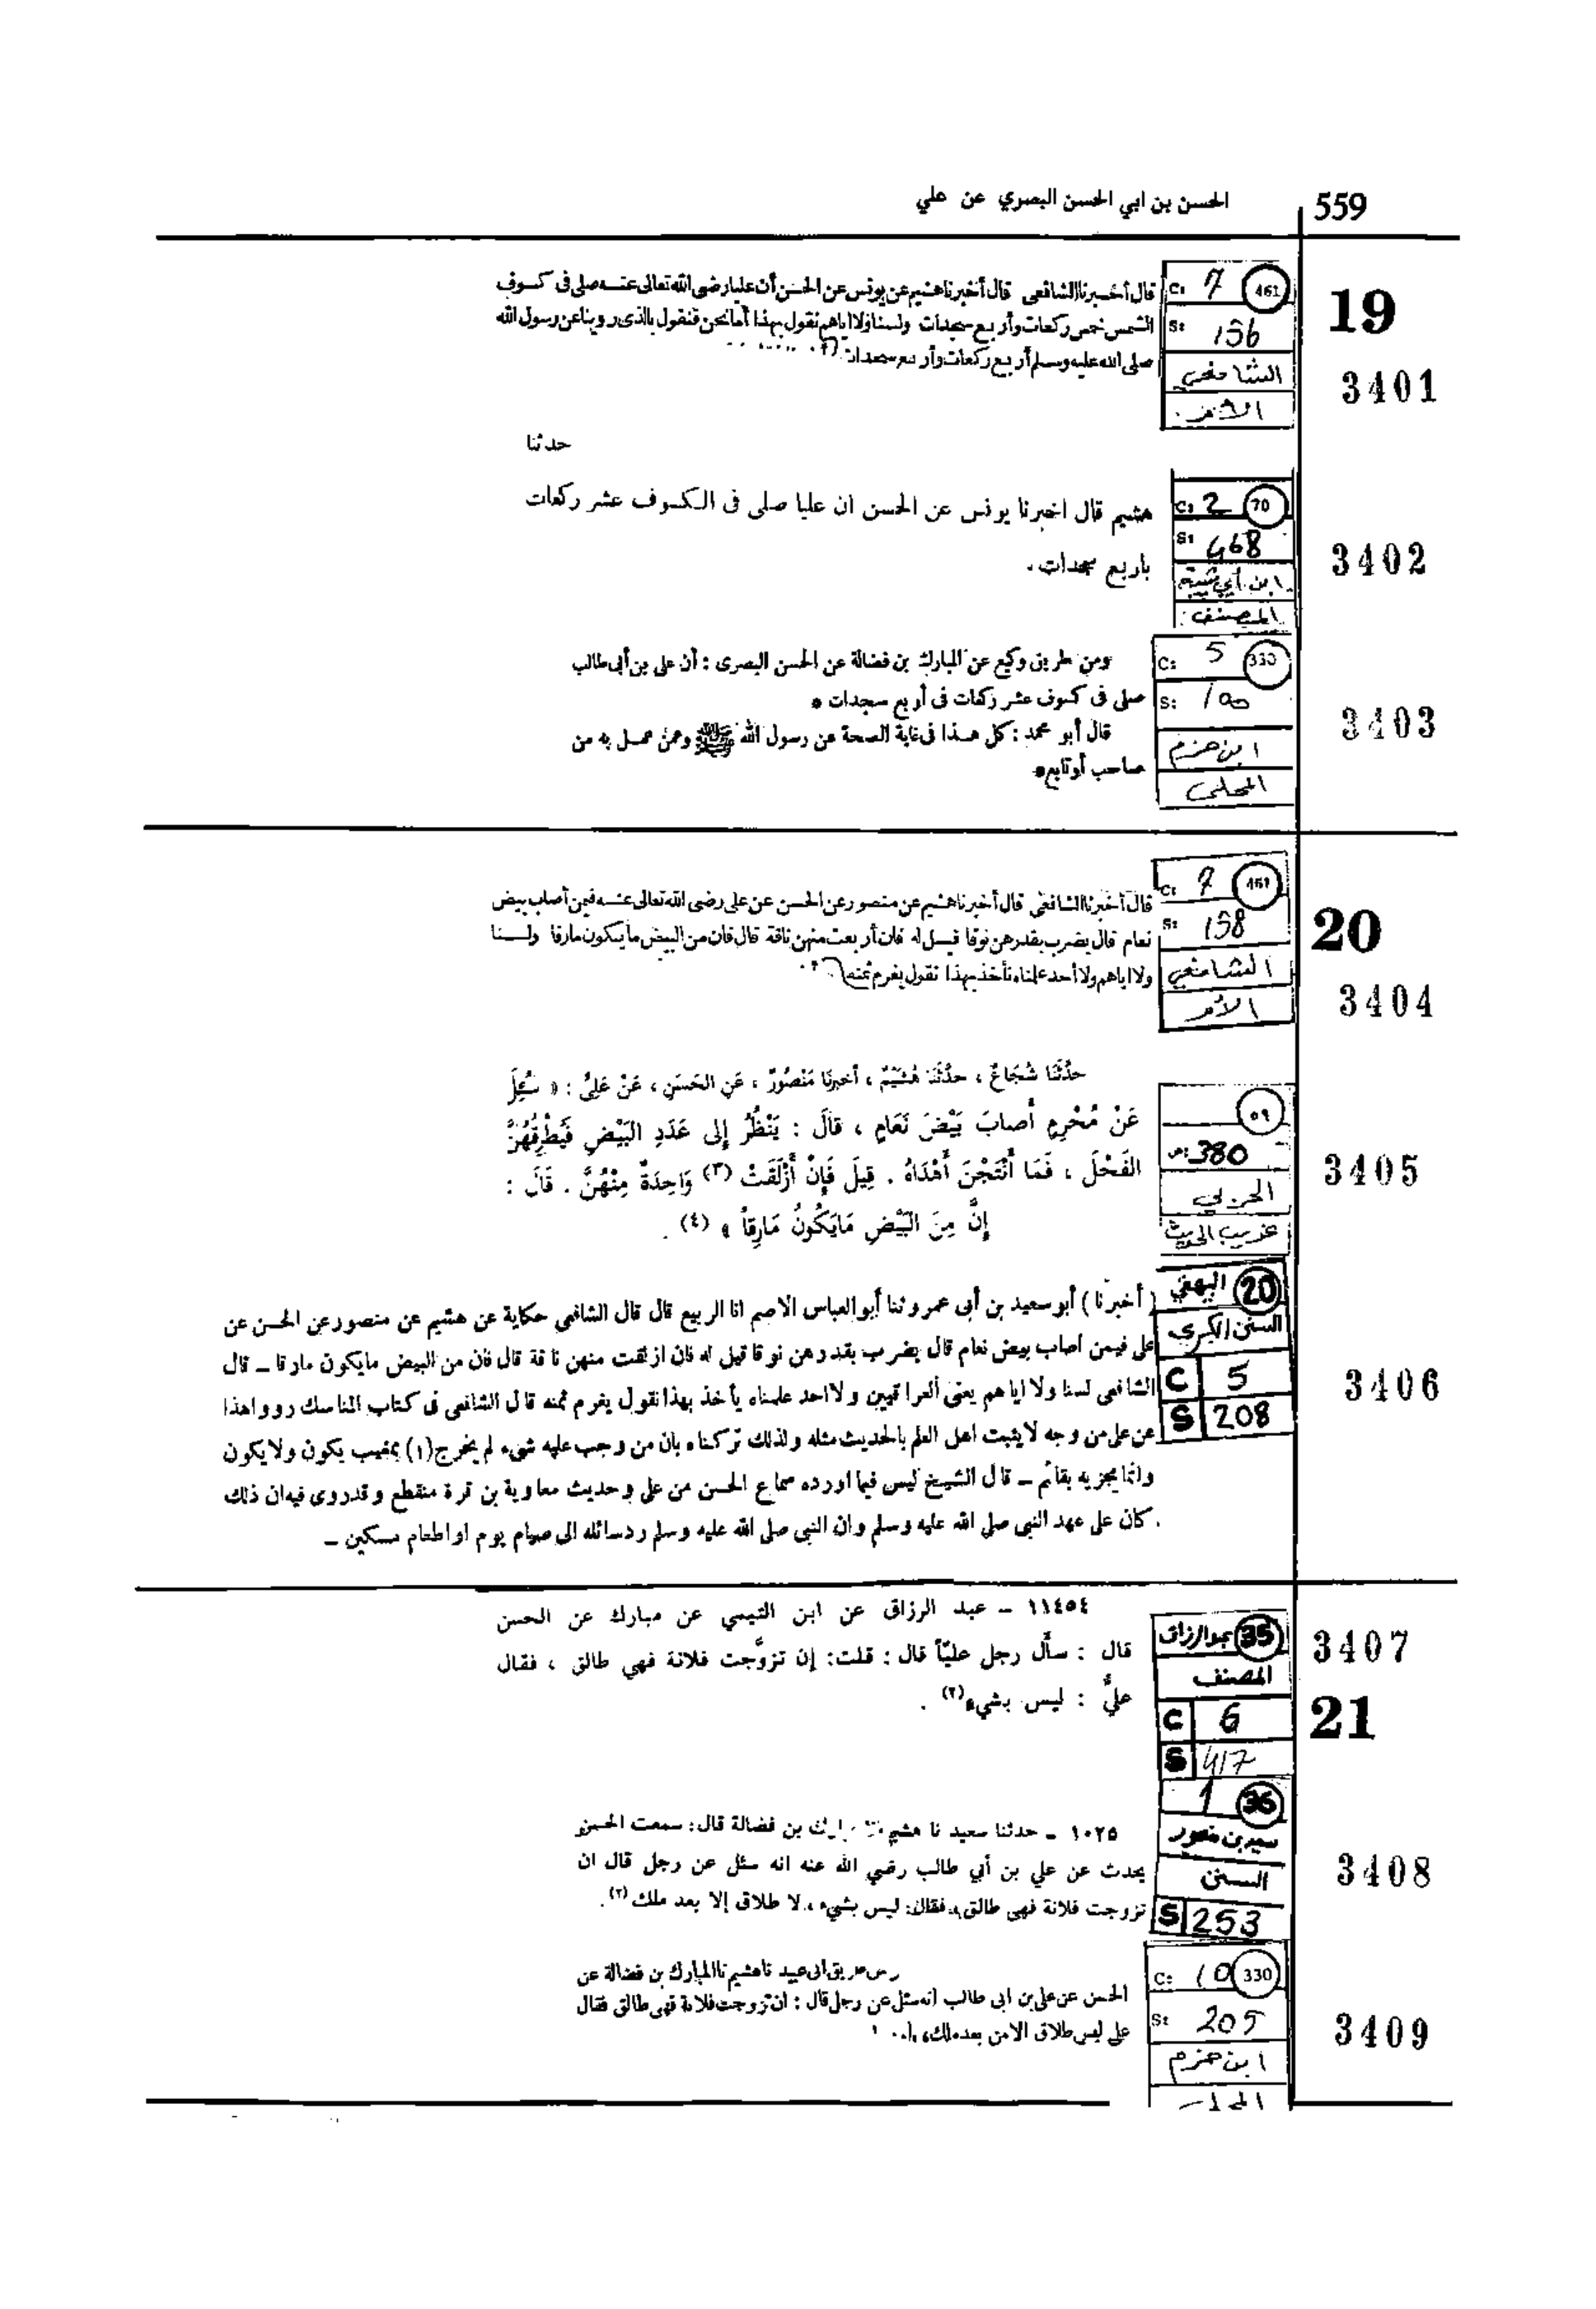 559
الحسن بن ابي الحسن البصري عن علي
19
3401
C: 7 461
S: 156
الشافعي
الأم
قال أخبرنا الشافعي قال أخبرنا هشيم عن يونس عن الحسن أن عليا رضى الله تعالى عنه صلى فى كسوف
الشمس خمس ركعات وأربع سجدات ولسنا ولا اياهم نقول بهذا أما نحن فنقول بالذى روينا عن رسول الله
صلى الله عليه وسلم أربع ركعات وأربع سجدات
3402
C: 2 70
S: 468
ابن أبي شيبة
المصنف
حدثنا
هشيم قال اخبرنا يونس عن الحسن ان عليا صلى فى الكسوف عشر ركعات
باربع سجدات .
3403
C: 5 330
S: 100
ابن حزم
المحلى
ومن طريق وكيع عن المبارك بن فضالة عن الحسن البصرى : أن على بن أبى طالب
صلى فى كسوف عشر ركعات فى أربع سجدات *
قال أبو محمد : كل هذا فى غاية الصحة عن رسول الله ﷺ وعمن عمل به من
صاحب أو تابع *
20
3404
C: 7 461
S: 158
الشافعي
الأم
قال أخبرنا الشافعى قال أخبرنا هشيم عن منصور عن الحسن عن على رضى الله تعالى عنه فيمن أصاب بيض
نعام قال يضرب بقدرهن نوقا قيل له فان أربعت منهن ناقة قال فان من البيض ما يكون مارقا ولسنا
ولا اياهم ولا أحد علمناه نأخذ بهذا نقول يغرم ثمنه
3405
٥٩
ص: 380
الحربي
غريب الحديث
حدَّثَنَا شُجَاعٌ ، حدَّثَنَا هُشَيْمٌ ، أخبرنَا مَنْصُورٌ ، عَنِ الحَسَنِ ، عَنْ عَلِىٍّ : « سُئِلَ
عَنْ مُحْرِمٍ أَصابَ بَيْضَ نَعَامٍ ، قالَ : يَنْظُرُ إلى عَدَدِ البَيْضِ فَيُطْرِقُهُنَّ
الفَحْلَ ، فَمَا أَنْتَجْنَ أَهْدَاهُ . قِيلَ فَإِنْ أَزْلَقَتْ (٣) وَاحِدَةٌ مِنْهُنَّ . قَالَ :
إنَّ مِنَ البَيْضِ مَايَكُونُ مَارِقاً » (٤) .
3406
20 البيهقي
السنن الكبرى
C 5
S 208
( أخبرنا ) أبو سعيد بن أبى عمرو ثنا أبو العباس الاصم انا الربيع قال قال الشافعى حكاية عن هشيم عن منصور عن الحسن عن
على فيمن اصاب بيض نعام قال يضرب بقدرهن نوقا قيل له فان ازلقت منهن ناقة قال فان من البيض مايكون مارقا ــ قال
الشافعى لسنا ولا اياهم يعنى العراقيين ولا احد علمناه يأخذ بهذا نقول يغرم ثمنه قال الشافعى فى كتاب المناسك رووا هذا
عن على من وجه لا يثبت اهل العلم بالحديث مثله ولذلك تركناه بان من وجب عليه شىء لم يخرج (١) بمغيب يكون ولا يكون
وانما يجزيه بقائم ــ قال الشيخ ليس فيما اورده سماع الحسن من على وحديث معاوية بن قرة منقطع وقد روى فيه ان ذلك
كان على عهد النبى صلى الله عليه وسلم وان النبى صلى الله عليه وسلم رد سائله الى صيام يوم او اطعام مسكين ــ
3407
21
35 عبد الرزاق
المصنف
C 6
S 417
١١٤٥٤ – عبد الرزاق عن ابن التيمي عن مبارك عن الحسن
قال : سأَل رجل عليّاً قال : قلت: إن تزوَّجت فلانة فهي طالق ، فقال
عليٌّ : ليس بشيء(٢) .
3408
1 36
سعيد بن منصور
السنن
S 253
١٠٢٥ – حدثنا سعيد نا هشيم نا مبارك بن فضالة قال: سمعت الحسن
يحدث عن علي بن أبي طالب رضي الله عنه انه سئل عن رجل قال ان
تزوجت فلانة فهى طالق ، فقال: ليس بشيء ، لا طلاق إلا بعد ملك (٢).
3409
C: 10 330
S: 205
ابن حزم
المحلى
من طريق ابى عبيد نا هشيم نا المبارك بن فضالة عن
الحسن عن على بن ابى طالب انه سئل عن رجل قال : ان تزوجت فلانة فهى طالق فقال
على ليس طلاق الا من بعد ملك